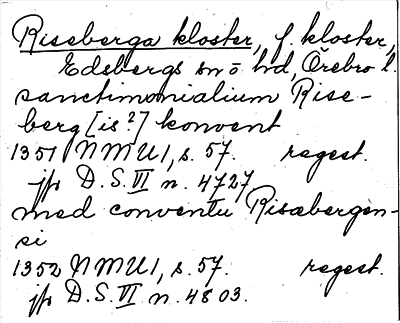 Riseberga kloster, f. kloster,
Edsbergs sn o hd, Örebro l.
sanctimonialium Rise-
berg [is?] konvent
1351 NMU1, s. 57. regest.
jfr D.S. VI n. 4727
med conventu Risæbergen-
si
1352 NMU1, s. 57. regest.
jfr D.S. VI n. 4803.